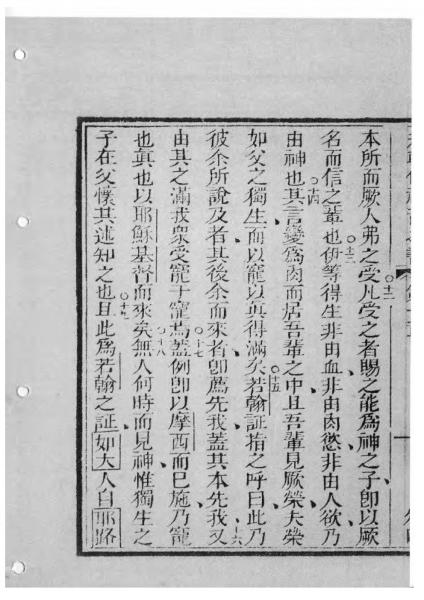 本所而厥人弗之受凡受之者賜之能為神之子即以厥
名而信之輩也伊等得生非由血非由肉慾非由人欲乃
由神也其言變為肉而居吾輩之中且吾輩見厥榮夫榮
如父之獨生而以寵以真得滿矣若翰証指之呼曰此乃
彼余所說及者其後余而來者即薦先我蓋其本先我又
由其之滿我眾受寵于寵焉蓋例即以摩西而已施乃寵
也真也以耶穌基督而來矣無人何時而見神惟獨生之
子在父懷其述知之也且此為若翰之証如大人自耶路